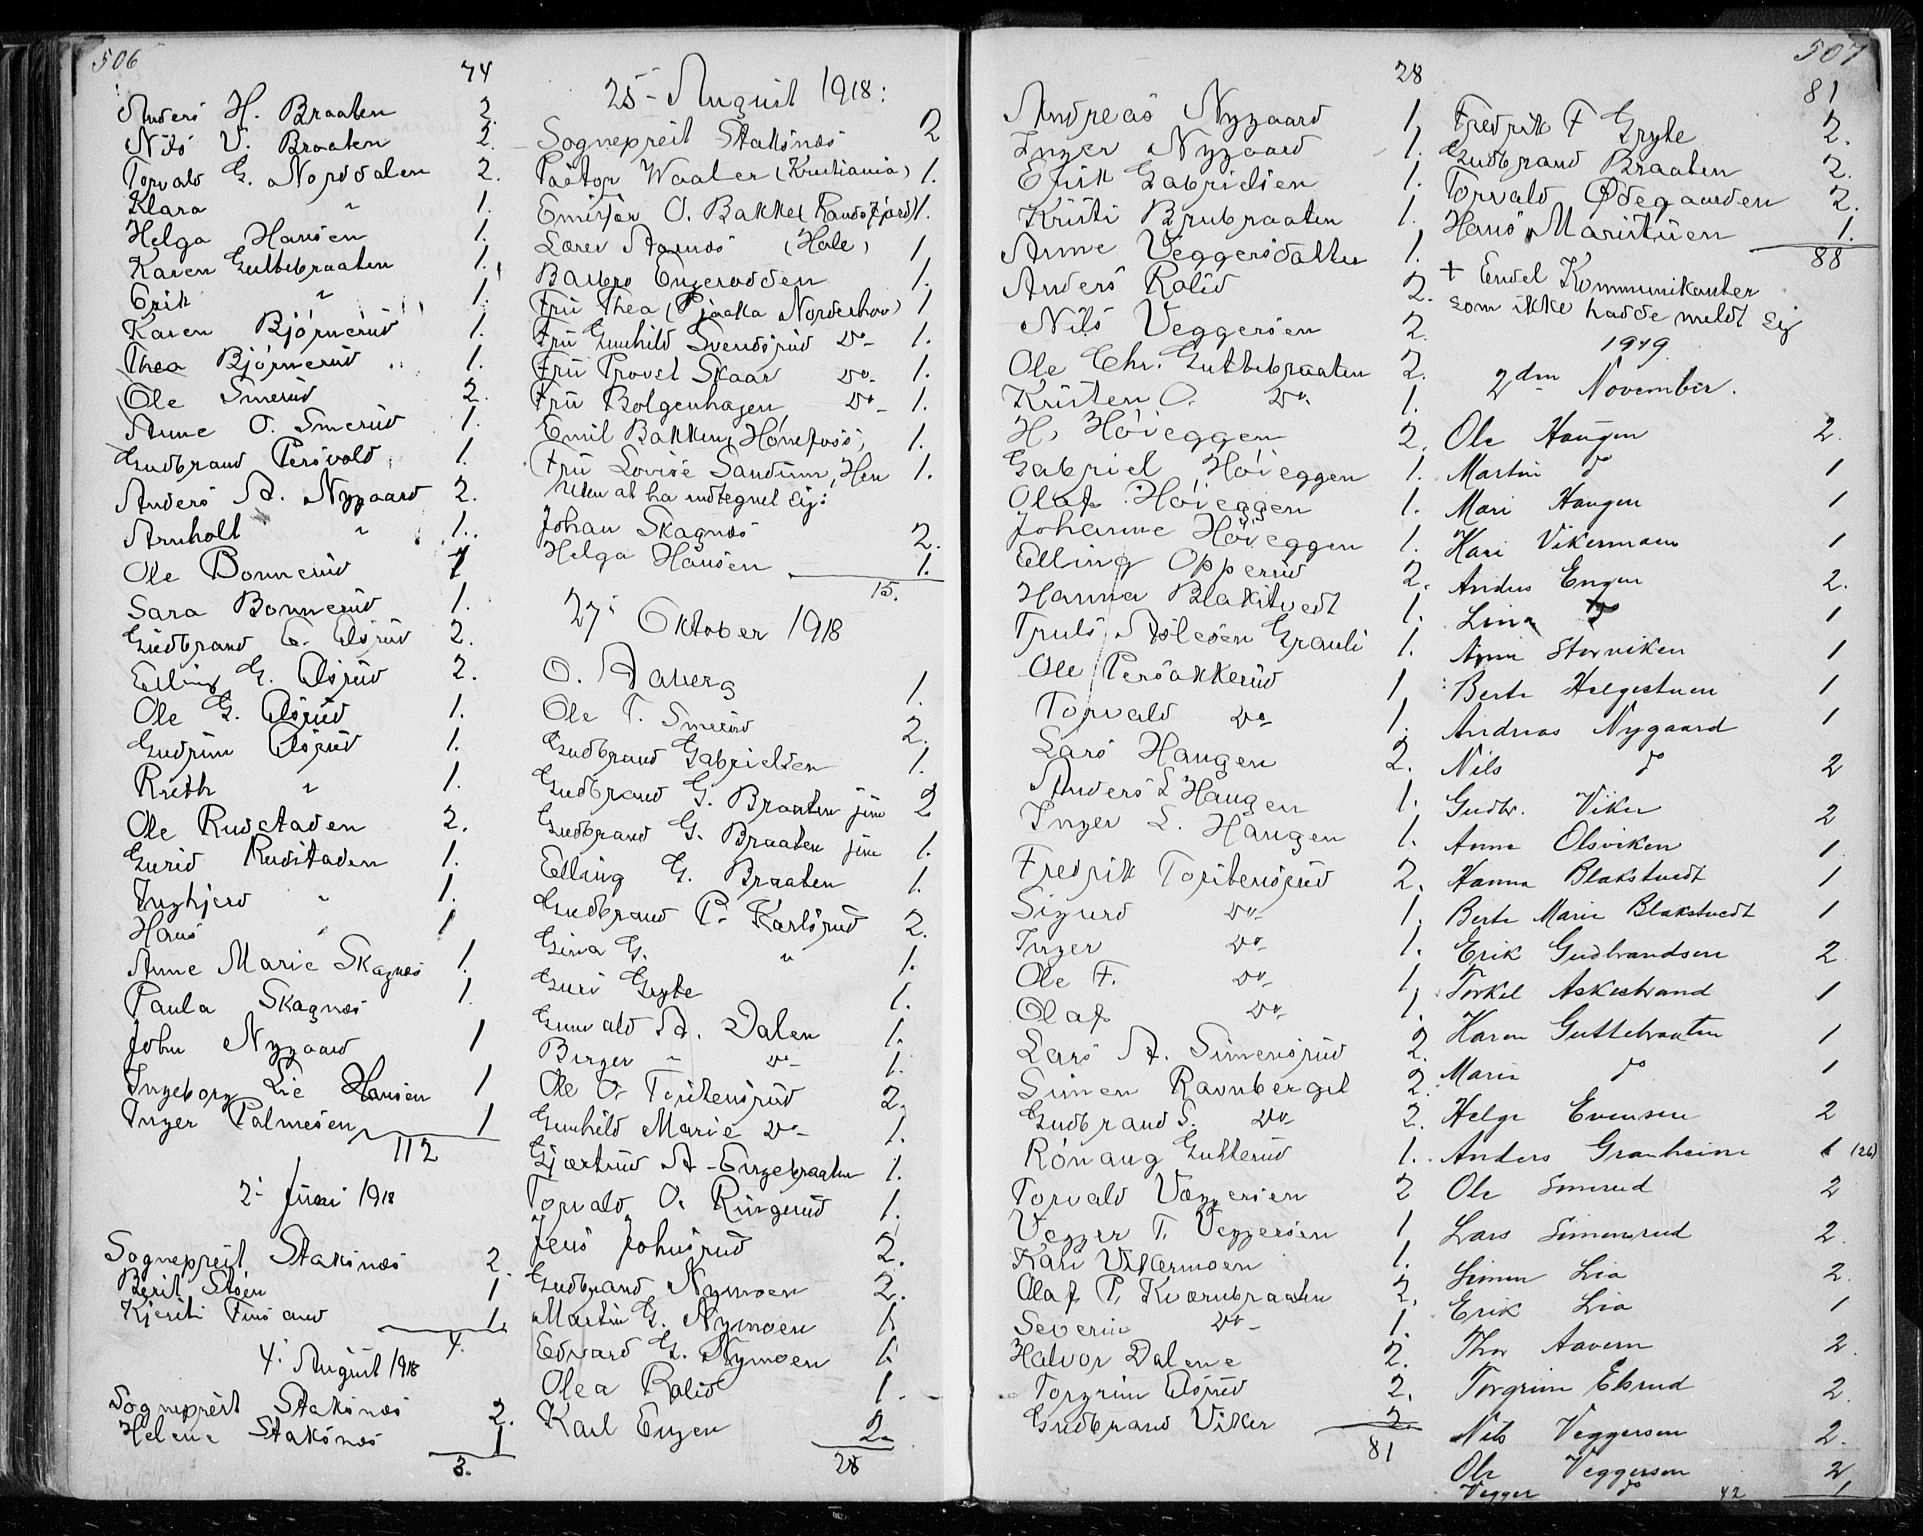 506
74
Anders H. Braaten 2.
Nils V. Braaten 2.
Torvald G. Norddalen 2.
Klara " 1.
Helga Hansen 1.
Karen Guttebraaten 1.
Erik " 1.
Karen Bjørnerud 1.
Thea Bjørnerud 1.
Ole Smerud 2.
Anne O. Smerud 1.
Gudbrand Persvold 1.
Anders A. Nygaard 2.
Arnholt " 1.
Ole Bonnerud 1
Sara Bonnerud 1.
Gudbrand E. Elsrud 2.
Elling G. Elsrud 2.
Ole G. Elsrud 1.
Gudrun Elsrud 1.
Ruth " 1.
Ole Rudstaden 2.
Gurid Rudstaden 1.
Ingbjerd " 1.
Hans " 1
Anne Marie Skagnæs 1.
Paula Skagnæs 1.
John Nygaard 1
Ingeborg Lie Hansen 1
Inger Palmesen 1
112
2' Juni 1918
Sogneprest Staksnæs 2.
Berit Støen 1
Kjersti Finsand 1.
4.
4' August 1918
Sogneprest Staksnæs 2.
Helene Staksnæs 1
3.
25 - August 1918:
Sogneprest Staksnæs 2
Pastor Waaler (Kristiania) 1.
Emisær O. Bakke (Randsfjord) 1.
Lærer Aarnæs (Hole) 1
Barbro Engerodden 1.
Fru Thea Pjaaka Norderhov) 1
Fru Gunhild Svendsrud Do- 1.
Fru Provst Skaar Do- 1.
Fru Bolgenhagen Do- 1.
Emil Bakken, Hønefoss, 1.
Fru Lovise Sandum, Hen 1.
Uden at ha indtegnet sig:
Johan Skagnæs 2.
Helga Hansen 1.
15.
27' Oktober 1918
O. Aaberg 1.
Ole T. Smerud 2.
Gudbrand Gabrielsen 1.
Gudbrand G. Braaten jun 2
Gudbrand G. Braaten jun 1.
Elling G. Braaten 1.
Gudbrand P. Karlsrud 2.
Gina G. " 1.
Guri Gryte 1.
Gunvald A. Dalen 1.
Birger - Do- 1.
Ole O. Torstensrud 2.
Gunhild Marie Do- 1.
Gjertrud A - Engebraaten 1.
Torvald O. Ringerud 1.
Jens Johnsrud 2.
Gudbrand Nymoen 2.
Martin G. Nymoen 1.
Edvard G. Nymoen 1.
Olea Rolid 1.
Karl Engen 2.
28
28
Andreas Nygaard 1.
Inger Nygaard 1.
Erik Gabrielsen 1.
Kristi Brubraaten 1.
Anne Veggersdatter 1.
Anders Rolid 2.
Nils Veggersen 2.
Ole Chr. Guttebraaten 2.
Kristen O. Do. 1.
H. Høieggen 2.
Gabriel Høieggen 1.
Olaf Høieggen 1.
Johanne Høieggen 1.
Elling Opperud 2.
Hanna Blakstvedt 1.
Truls Aslesen Grauli 1.
Ole Persakkerud 1.
Torvald Do- 1.
Lars Haugen 2.
Anders L Haugen 1.
Inger L. Haugen 1.
Fredrik Torstensrud 2.
Sigurd Do- 1.
Inger Do- 1.
Ole F. Do- 1.
Olaf Do- 1.
Lars A. Simensrud 2.
Simen Ravnberget 2.
Gudbrand S. Do- 2.
Rønaug Gutterud 1.
Torvald Væggersen 2
Vegger T. Veggersen 1
Kari Vikermoen 1.
Olaf P. Kværnbraaten 2.
Severin Do- 1.
Halvor Dalene 2.
Torgrim Elsrud 2.
Gudbrand Viker 2.
81
507
81
Fredrik F Gryte 2.
Gudbrand Braaten 2.
Torvald Ødegaarden 2.
Hans Maristuen 1.
88
+ Endel Kommunikanter
som ikke hadde meldt sig
1919
2den November.
Ole Haugen 2.
Martin do 1
Mari Haugen 1
Kari Vikermoen 1
Anders Engen 2.
Lina do 1
Anne Storviken 1
Berte Helgestuen 1
Andreas Nygaard 1
Nils do 2
Gudbr. Viker 2
Anne Olsviken 1
Hanna Blakstvedt 1
Berte Marie Blakstvedt 1
Erik Gudbrandsen 2
Torkel Askestrand 1
Karen Guttebraaten 1
Marie do 1
Helge Evensen 2
Anders Granheim 1 (26)
Ole Smerud 2
Lars Simensrud 2.
Simen Lia 2.
Erik Lia 1
Thor Aavern 2.
Torgrim Elsrud 2.
Nils Veggersen 2.
Ole Veggersen 2
Vegger do 1
42